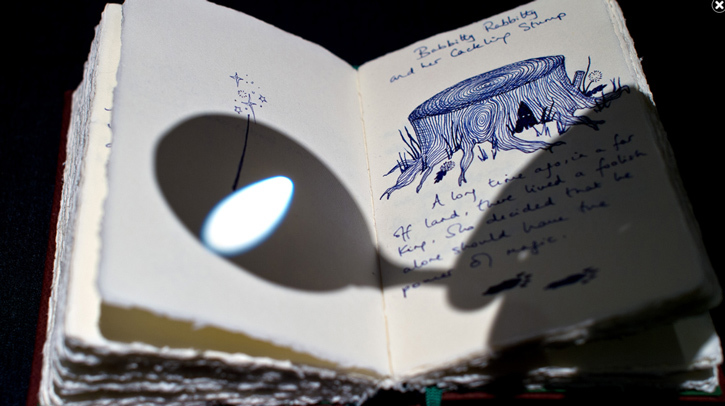 Babbitty Rabbitty
and her Cackling Stump
A long time ago, in a far
off land, there lived a foolish
King. Who decided that he
alone should have the
power of magic.